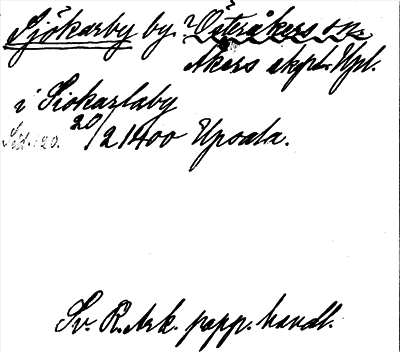 Sjökarby by. Österåkers sn.
Åkers skpl. Upl.
i Siokarlaby
20/2 1400 Upsala.
Sv. R. Ark. papp. handl.